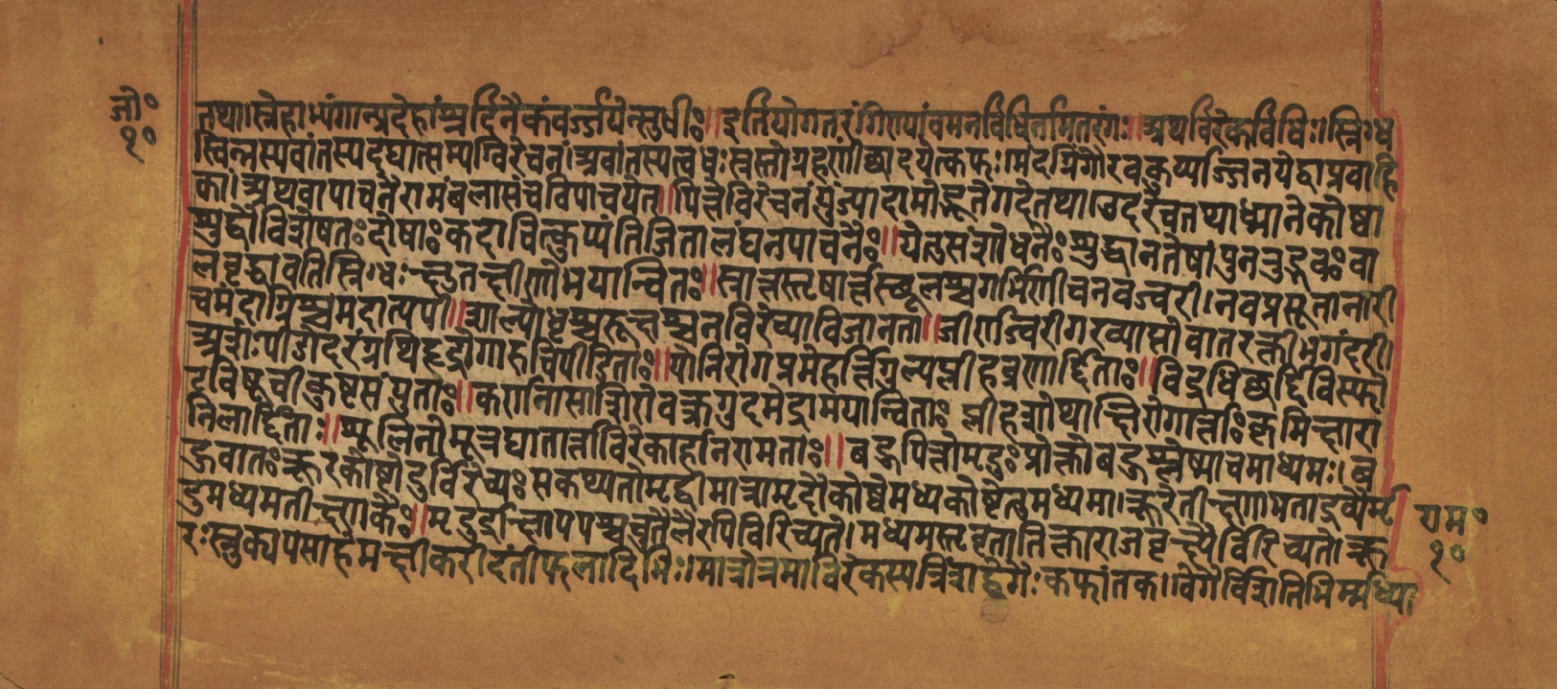 जो॰
१०
तथा। स्नेहाभ्यंगान्प्रदेहांश्चर्दिनैकंवर्ज्जयेत्सुधीः॥ इतियोगतरंगिण्यांवमनविधिर्नामतरंगः॥ अथविरेकविधिः। स्निग्ध
स्विन्नस्यवांतस्यदद्यात्सम्यग्विरेचनं। अवांतस्यत्वधःस्रस्तोग्रहणीछादयेत्कफः। मंदाग्निंगौरवंकुर्य्याज्जनयेद्वाप्रवाहि
कां। अथवापाचनैरामंबलासंचविपाचयेत्॥ पित्तेविरेचनंयुंज्यादामोद्भूतेगदेतथा। उदरेचतथाध्मानेकोष्ठा
शुद्धौविशेषतः दोषाः कदाचित्कुप्यंतिजितालंघनपाचनैः॥ येतुसंशोधनैः शुद्धानतेषांपुनरुद्भवः वा
लवृद्धावतिस्निग्धः क्षतक्षीणोभयान्वितः॥ स्रांतस्तृषार्त्तस्थूलश्चगर्भिणीचनवज्वरी। नवप्रसूतानारी
चमंदाग्निश्चमदात्ययी॥ शल्यार्द्दितश्चरूक्षश्चनविरेच्याविजानता॥ जीर्णज्वरीगरव्याप्तोवातरक्तीभगंदरी।
अर्शःपांडूदरंग्रथिहृद्रोगारुचिपीडिताः॥ योनिरोगप्रमेहार्त्तिगुल्मप्लीहव्रणार्द्दिताः॥ विद्रधिछर्द्दिविस्फो
टविषूचीकुष्टसंयुताः॥ कर्णनासाशिरोवक्त्रगुदमेढ्रामयान्विताः प्लीहशोथाक्षिरोगार्त्ताः कृमिक्षारा
निलार्द्दिताः॥ शूलिनोमूत्रघातार्त्ताविरेकार्हानरामताः॥ बहुपित्तोमृदुः प्रोक्तोबहुश्लेष्माचमध्यमः। ब
हुवातः क्रूरकोष्टोदुर्विरेच्यः सकथ्यतोमृद्वीमात्रामृदौकोष्ठेमध्यकोष्टेतुमध्यमा। क्रूरेतीक्ष्णामताद्रव्यैर्मृ
दुमध्यमतीक्ष्णकैः॥ मृदुर्द्राक्षापयश्चंचुतैलैरपिविरिच्यते। मध्यमस्तृवृतातिक्ताराजवृक्षैर्विरिच्यते। क्रू
रःस्नुक्पयसाहेमक्षीरीदंतीफलादिभिः। मात्रोत्तमाविरेकस्यत्रिंशद्वेगैः कफांतका। वेगैर्विंशतिभिर्म्मध्या
राम॰
१०